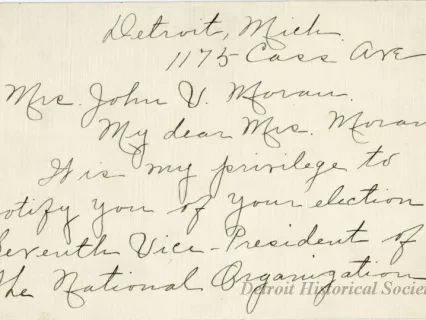 Detroit, Mich.
1175 Cass Ave
Mrs. John V. Moran.
My dear Mrs. Moran
It is my privilege to
notify you of your election
Seventh Vice-President of
the National Organization
Detroit Historical Society